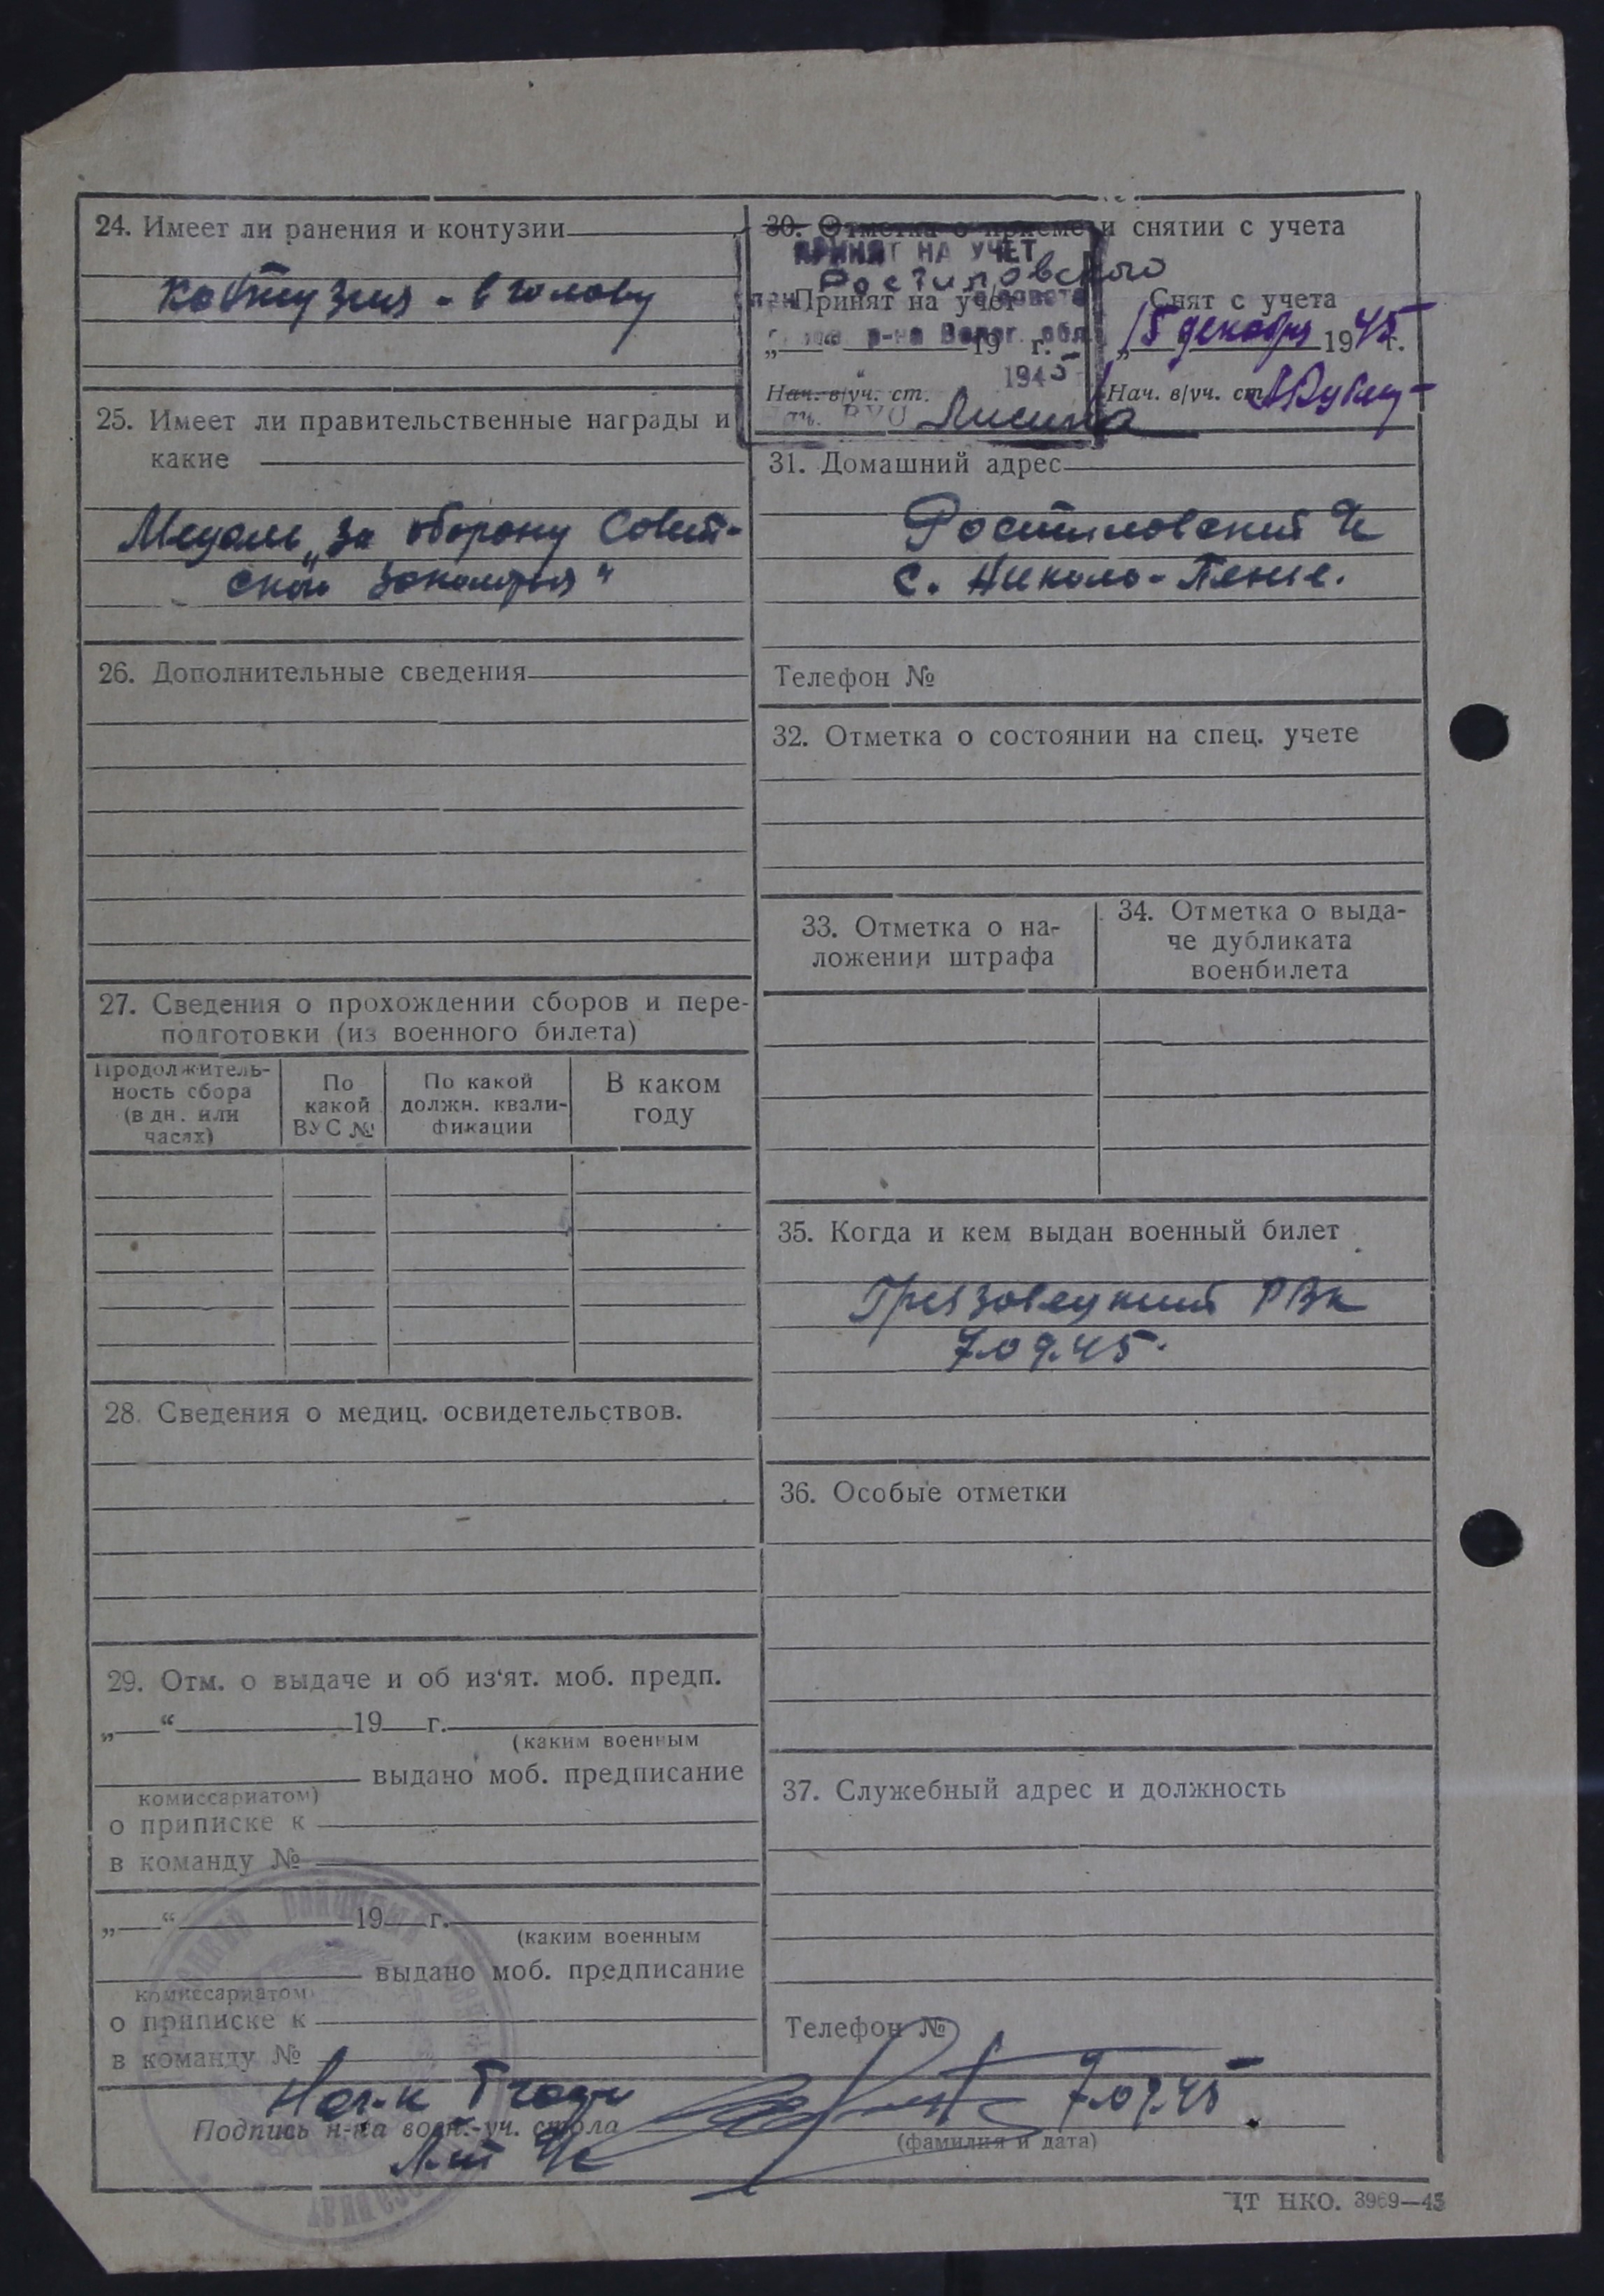 24. Имеет ли ранения и контузии
Контузия - в голову
25. Имеет ли правительственные награды и
какие
Медаль „За оборону Совет-
ского Заполярья"
26. Дополнительные сведения
27. Сведения о прохождении сборов и пере-
подготовки (из военного билета)
Продолжитель-
ность сбора
(в дн. или
часах)
По
какой
ВУС №
По какой
должн. квали-
фикации
В каком
году
28. Сведения о медиц. освидетельствов.
29. Отм. о выдаче и об из'ят. моб. предп.
„ “ 19 г.
(каким военным
выдано моб. предписание
комиссариатом)
о приписке к
в команду №
„ “ 19 г.
(каким военным
выдано моб. предписание
комиссариатом)
о приписке к
в команду №
30. Отметка о приеме и снятии с учета
ПРИНЯТ НА УЧЕТ
Ростиловского
Принят на учет
с/совета
р-на Волог. обл.
„ “ 19 г.
1945
Нач. в/уч. ст.
Нач. ВУС Лисина
Снят с учета
„15 декабря 1945 г.
Нач. в/уч. ст.
31. Домашний адрес
Ростиловский
с. Николо-Пенье.
Телефон №
32. Отметка о состоянии на спец. учете
33. Отметка о на-
ложении штрафа
34. Отметка о выда-
че дубликата
военбилета
35. Когда и кем выдан военный билет
Грязовецкий РВК
7.09.45.
36. Особые отметки
37. Служебный адрес и должность
Телефон №
Нач-к
Подпись н-ка воен.-уч. стола
7.09.45
(фамилия и дата)
ЦТ НКО. 3969—43